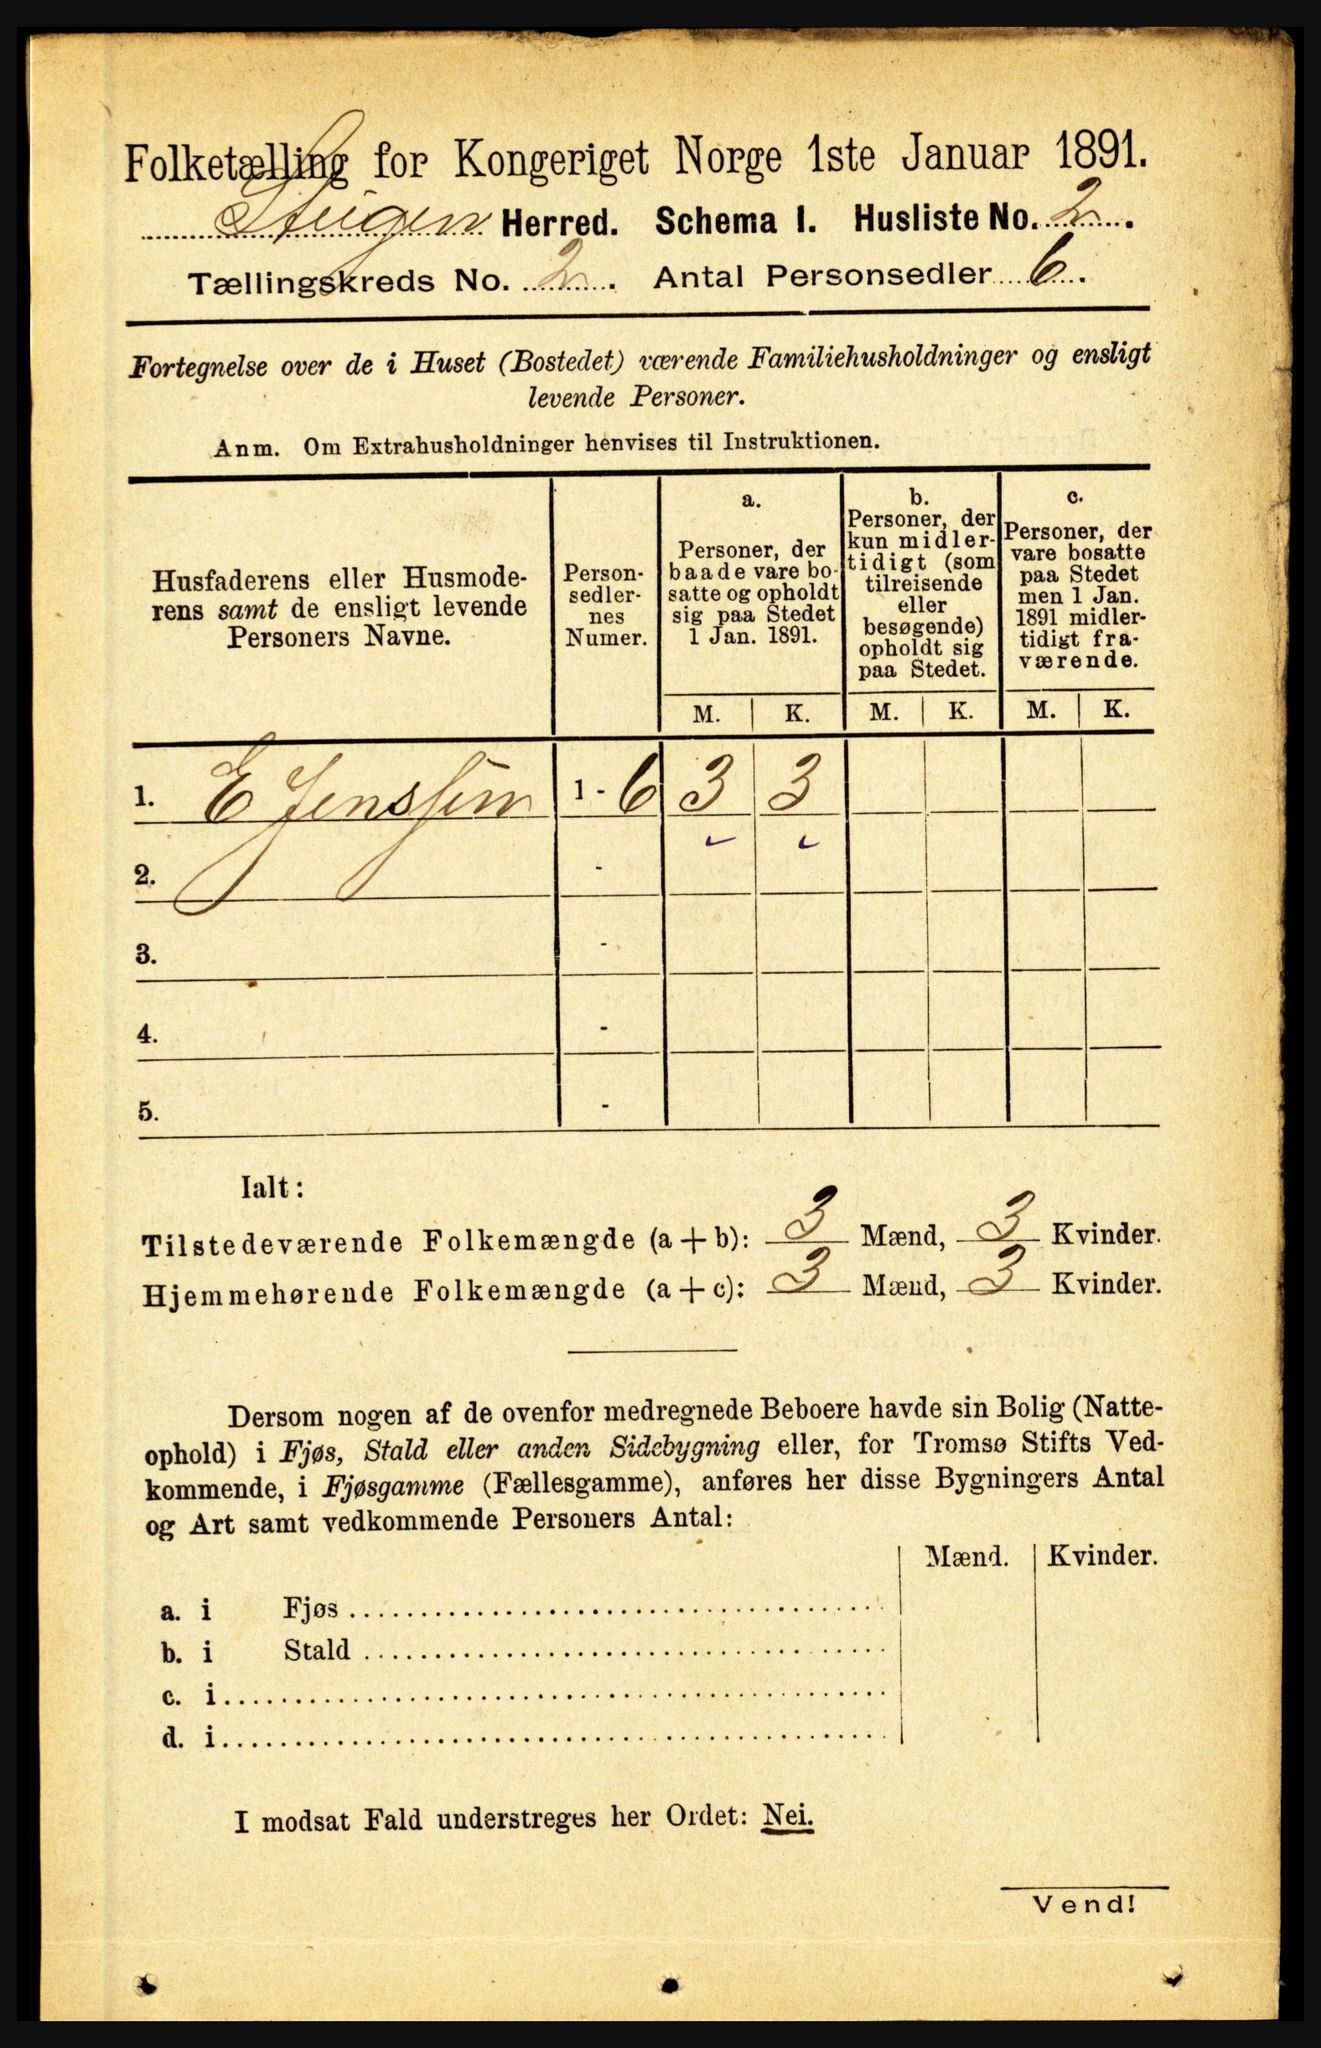 Folketælling for Kongeriget Norge 1ste Januar 1891.
Steigen Herred. Schema I. Husliste No. 2.
Tællingskreds No. 2. Antal Personsedler 6.
Fortegnelse over de i Huset (Bostedet) værende Familiehusholdninger og ensligt
levende Personer.
Anm. Om Extrahusholdninger henvises til Instruktionen.
Husfaderens eller Husmode-
rens samt de ensligt levende
Personers Navne.
Person-
sedler-
nes
Numer.
a.
Personer, der
baade vare bo-
satte og opholdt
sig paa Stedet
1 Jan. 1891.
b.
Personer, der
kun midler-
tidigt (som
tilreisende
eller
besøgende)
opholdt sig
paa Stedet.
c.
Personer, der
vare bosatte
paa Stedet
men 1 Jan.
1891 midler-
tidigt fra-
værende.
M. K. M. K. M. K.
1. E Jenssen 1 - 6 3 3
2. -
3. -
4. -
5. -
Ialt:
Tilstedeværende Folkemængde (a + b): 3 Mænd, 3 Kvinder.
Hjemmehørende Folkemængde (a + c): 3 Mænd, 3 Kvinder.
Dersom nogen af de ovenfor medregnede Beboere havde sin Bolig (Natte-
ophold) i Fjøs, Stald eller anden Sidebygning eller, for Tromsø Stifts Ved-
kommende, i Fjøsgamme (Fællesgamme), anføres her disse Bygningers Antal
og Art samt vedkommende Personers Antal:
Mænd. Kvinder.
a. i Fjøs
b. i Stald
c. i
d. i
I modsat Fald understreges her Ordet: Nei.
Vend!